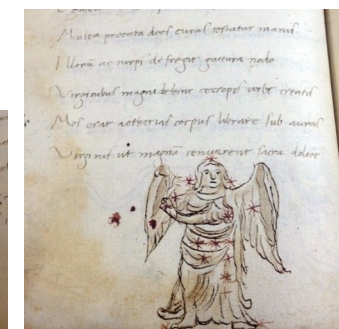 Multa precata deos curas testatur
Illorũ ac turpi de fregit guttura nodo
Virginibus magni dehinc cecropis urbe creatis
Mos erat aetherias corpus librare sub auras
Virginis ut magnã sacra dolorē